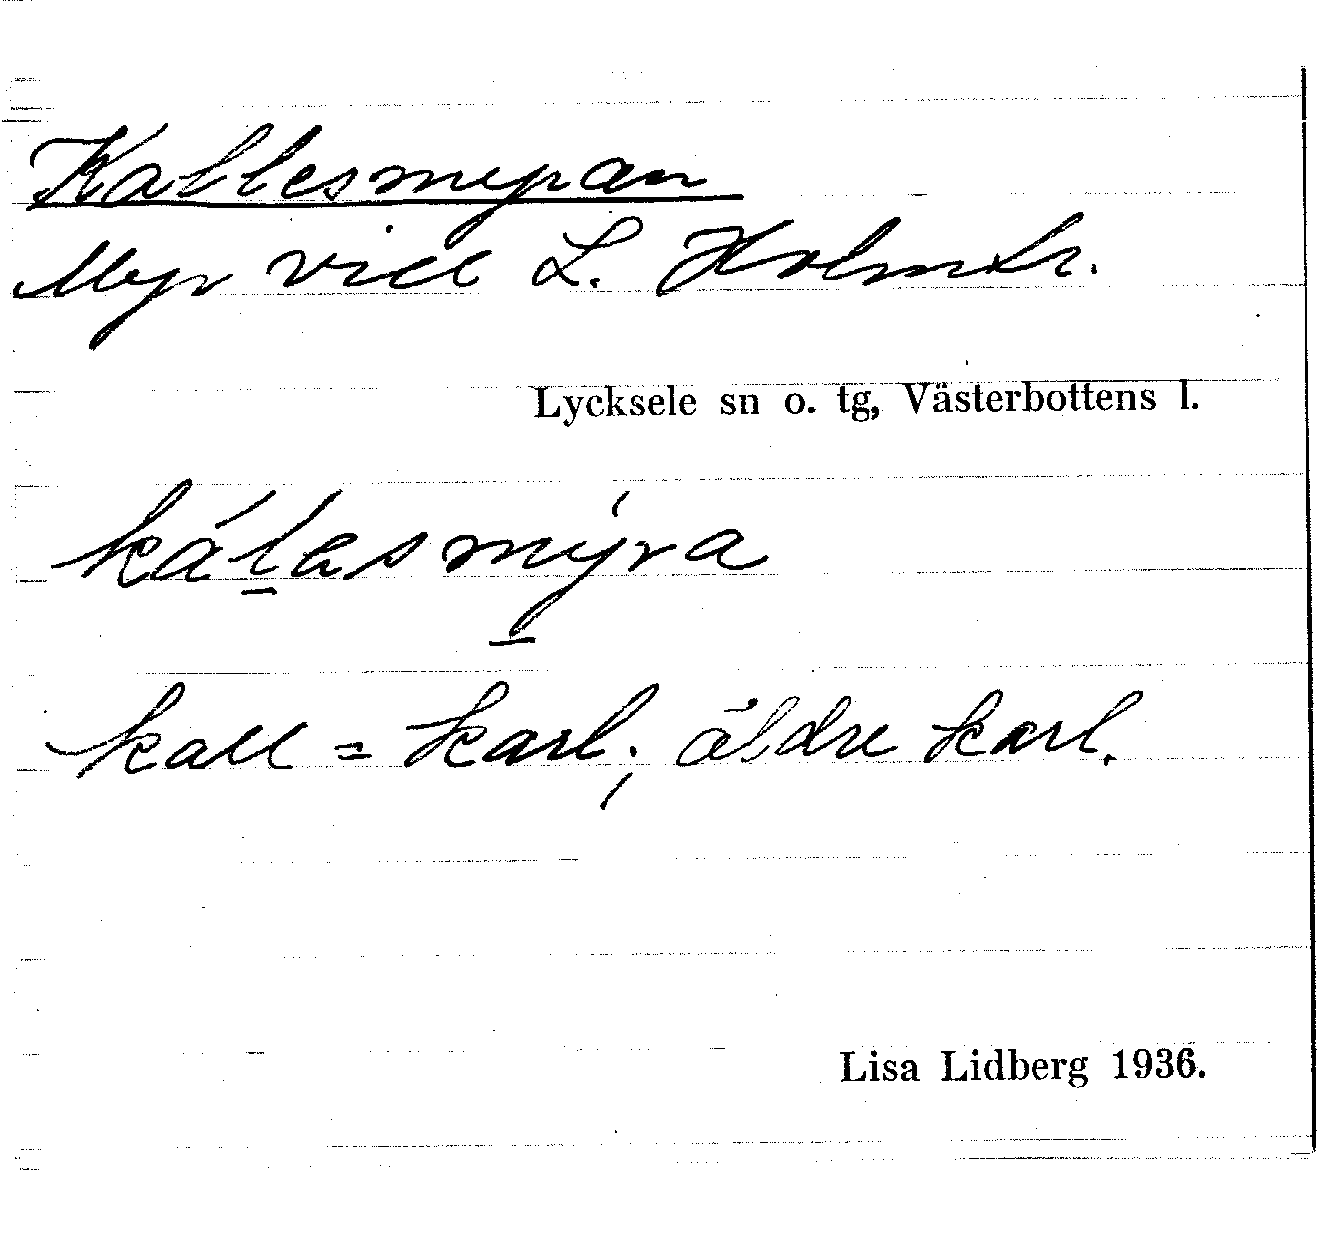 Kallesmyran
Myr vid L. Holmtr.
Lycksele sn o. tg, Västerbottens l.
kálasmýra
kall = karl; äldre karl.
Lisa Lidberg 1936.